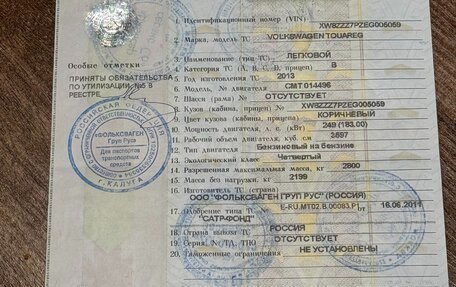 1. Идентификационный номер (VIN) XW8ZZZ7PZEG005059
2. Марка, модель ТС VOLKSWAGEN TOUAREG
3. Наименование (тип ТС) ЛЕГКОВОЙ
4. Категория ТС (А, В, С, D, прицеп) B
5. Год изготовления ТС 2013
6. Модель, № двигателя CMT 014496
7. Шасси (рама) № ОТСУТСТВУЕТ
8. Кузов (кабина, прицеп) № XW8ZZZ7PZEG005059
9. Цвет кузова (кабины, прицепа) КОРИЧНЕВЫЙ
10. Мощность двигателя, л. с. (кВт) 249 (183.00)
11. Рабочий объем двигателя, куб. см 3597
12. Тип двигателя Бензиновый на бензине
13. Экологический класс Четвертый
14. Разрешенная максимальная масса, кг 2800
15. Масса без нагрузки, кг 2199
16. Изготовитель ТС (страна)
ООО "ФОЛЬКСВАГЕН ГРУП РУС" (РОССИЯ)
17. Одобрение типа ТС № E-RU.MT02.B.00083.P1 от 16.06.2011
"САТР-ФОНД"
18. Страна вывоза ТС РОССИЯ
19. Серия, № ТД, ТПО ОТСУТСТВУЕТ
20. Таможенные ограничения НЕ УСТАНОВЛЕНЫ
Особые отметки
ПРИНЯТЫ ОБЯЗАТЕЛЬСТВА
ПО УТИЛИЗАЦИИ. №5 В
РЕЕСТРЕ.
РОССИЙСКАЯ ФЕДЕРАЦИЯ
«ФОЛЬКСВАГЕН
Груп Рус»
Для паспортов
транспортных
средств
г. КАЛУГА